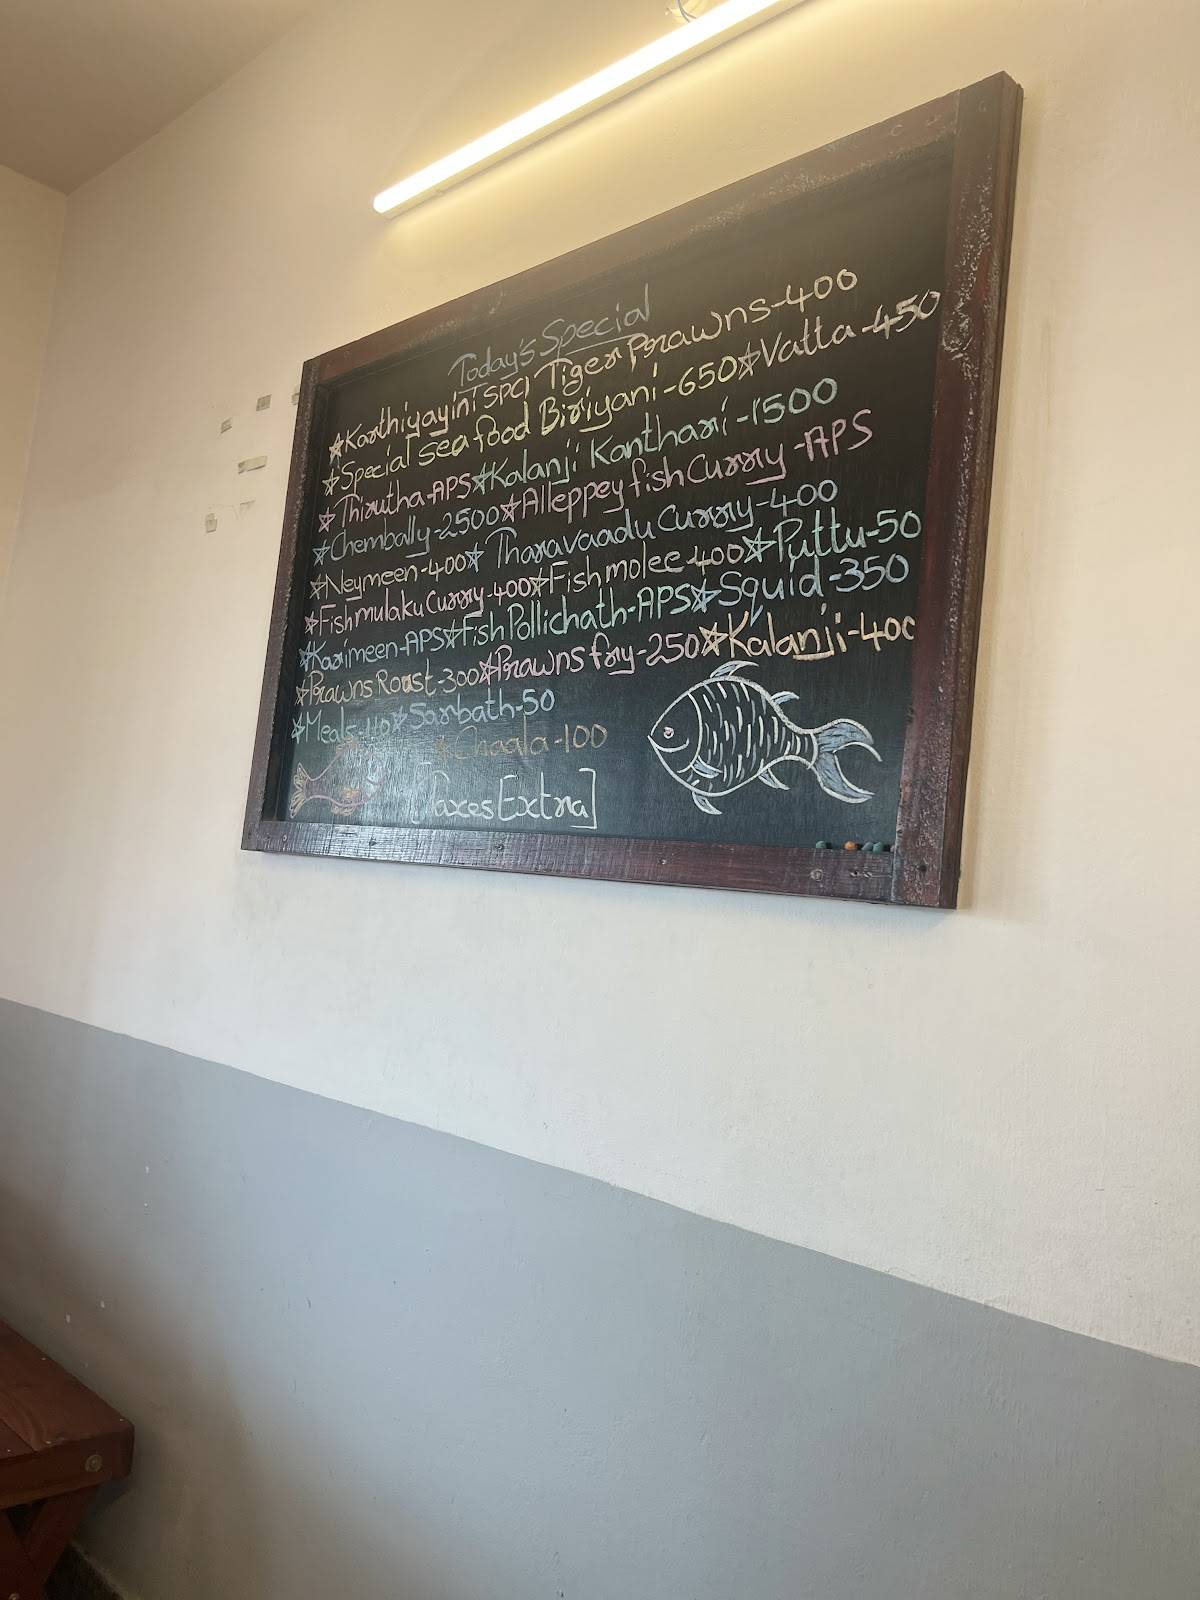 Today's Special
☆Karthiyayini SPCl Tiger Prawns-400
☆Special sea food Biriyani-650☆Vatta-450
☆Thirutha-APS☆Kalanji Kanthari-1500
☆Chembally-2500☆Alleppey fish Curry-APS
☆Neymeen-400☆Tharavaadu Curry-400
☆Fish mulaku Curry-400☆Fish molee-400☆Puttu-50
☆Karimeen-APS☆Fish Pollichath-APS☆Squid-350
☆Prawns Roast-300☆Prawns fry-250☆Kalanji-400
☆Meals-110☆Sarbath-50
☆Chaala-100
[Taxes Extra]